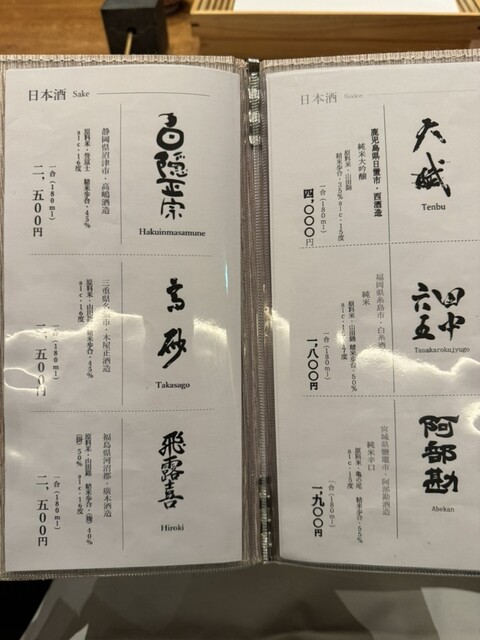 日本酒 Sake
白隠正宗
Hakuinmasamune
静岡県沼津市・高嶋酒造
原料米・誉富士 精米歩合・45%
alc・16度
一合(180ml)
二、五〇〇円
高砂
Takasago
三重県名張市・木屋正酒造
原料米・山田錦 精米歩合・45%
alc・16度
一合(180ml)
二、五〇〇円
飛露喜
Hiroki
福島県河沼郡・廣木酒造
原料米・山田錦 精米歩合・(麹)40%
(掛)50% alc・16度
一合(180ml)
二、五〇〇円
日本酒
天賦
Tenbu
鹿児島県日置市・西酒造
純米大吟醸
原料米・山田錦 精米歩合・35% alc・15度
一合(180ml)
四、〇〇〇円
田中六五
Tanakarokujyugo
福岡県糸島市・白糸酒造
純米
原料米・山田錦 精米歩合・50%
一合(180ml)
一、八〇〇円
阿部勘
Abekan
宮城県塩竈市・阿部勘酒造
純米辛口
原料米・亀の尾 精米歩合・55%
alc・15度
一合(180ml)
一、九〇〇円